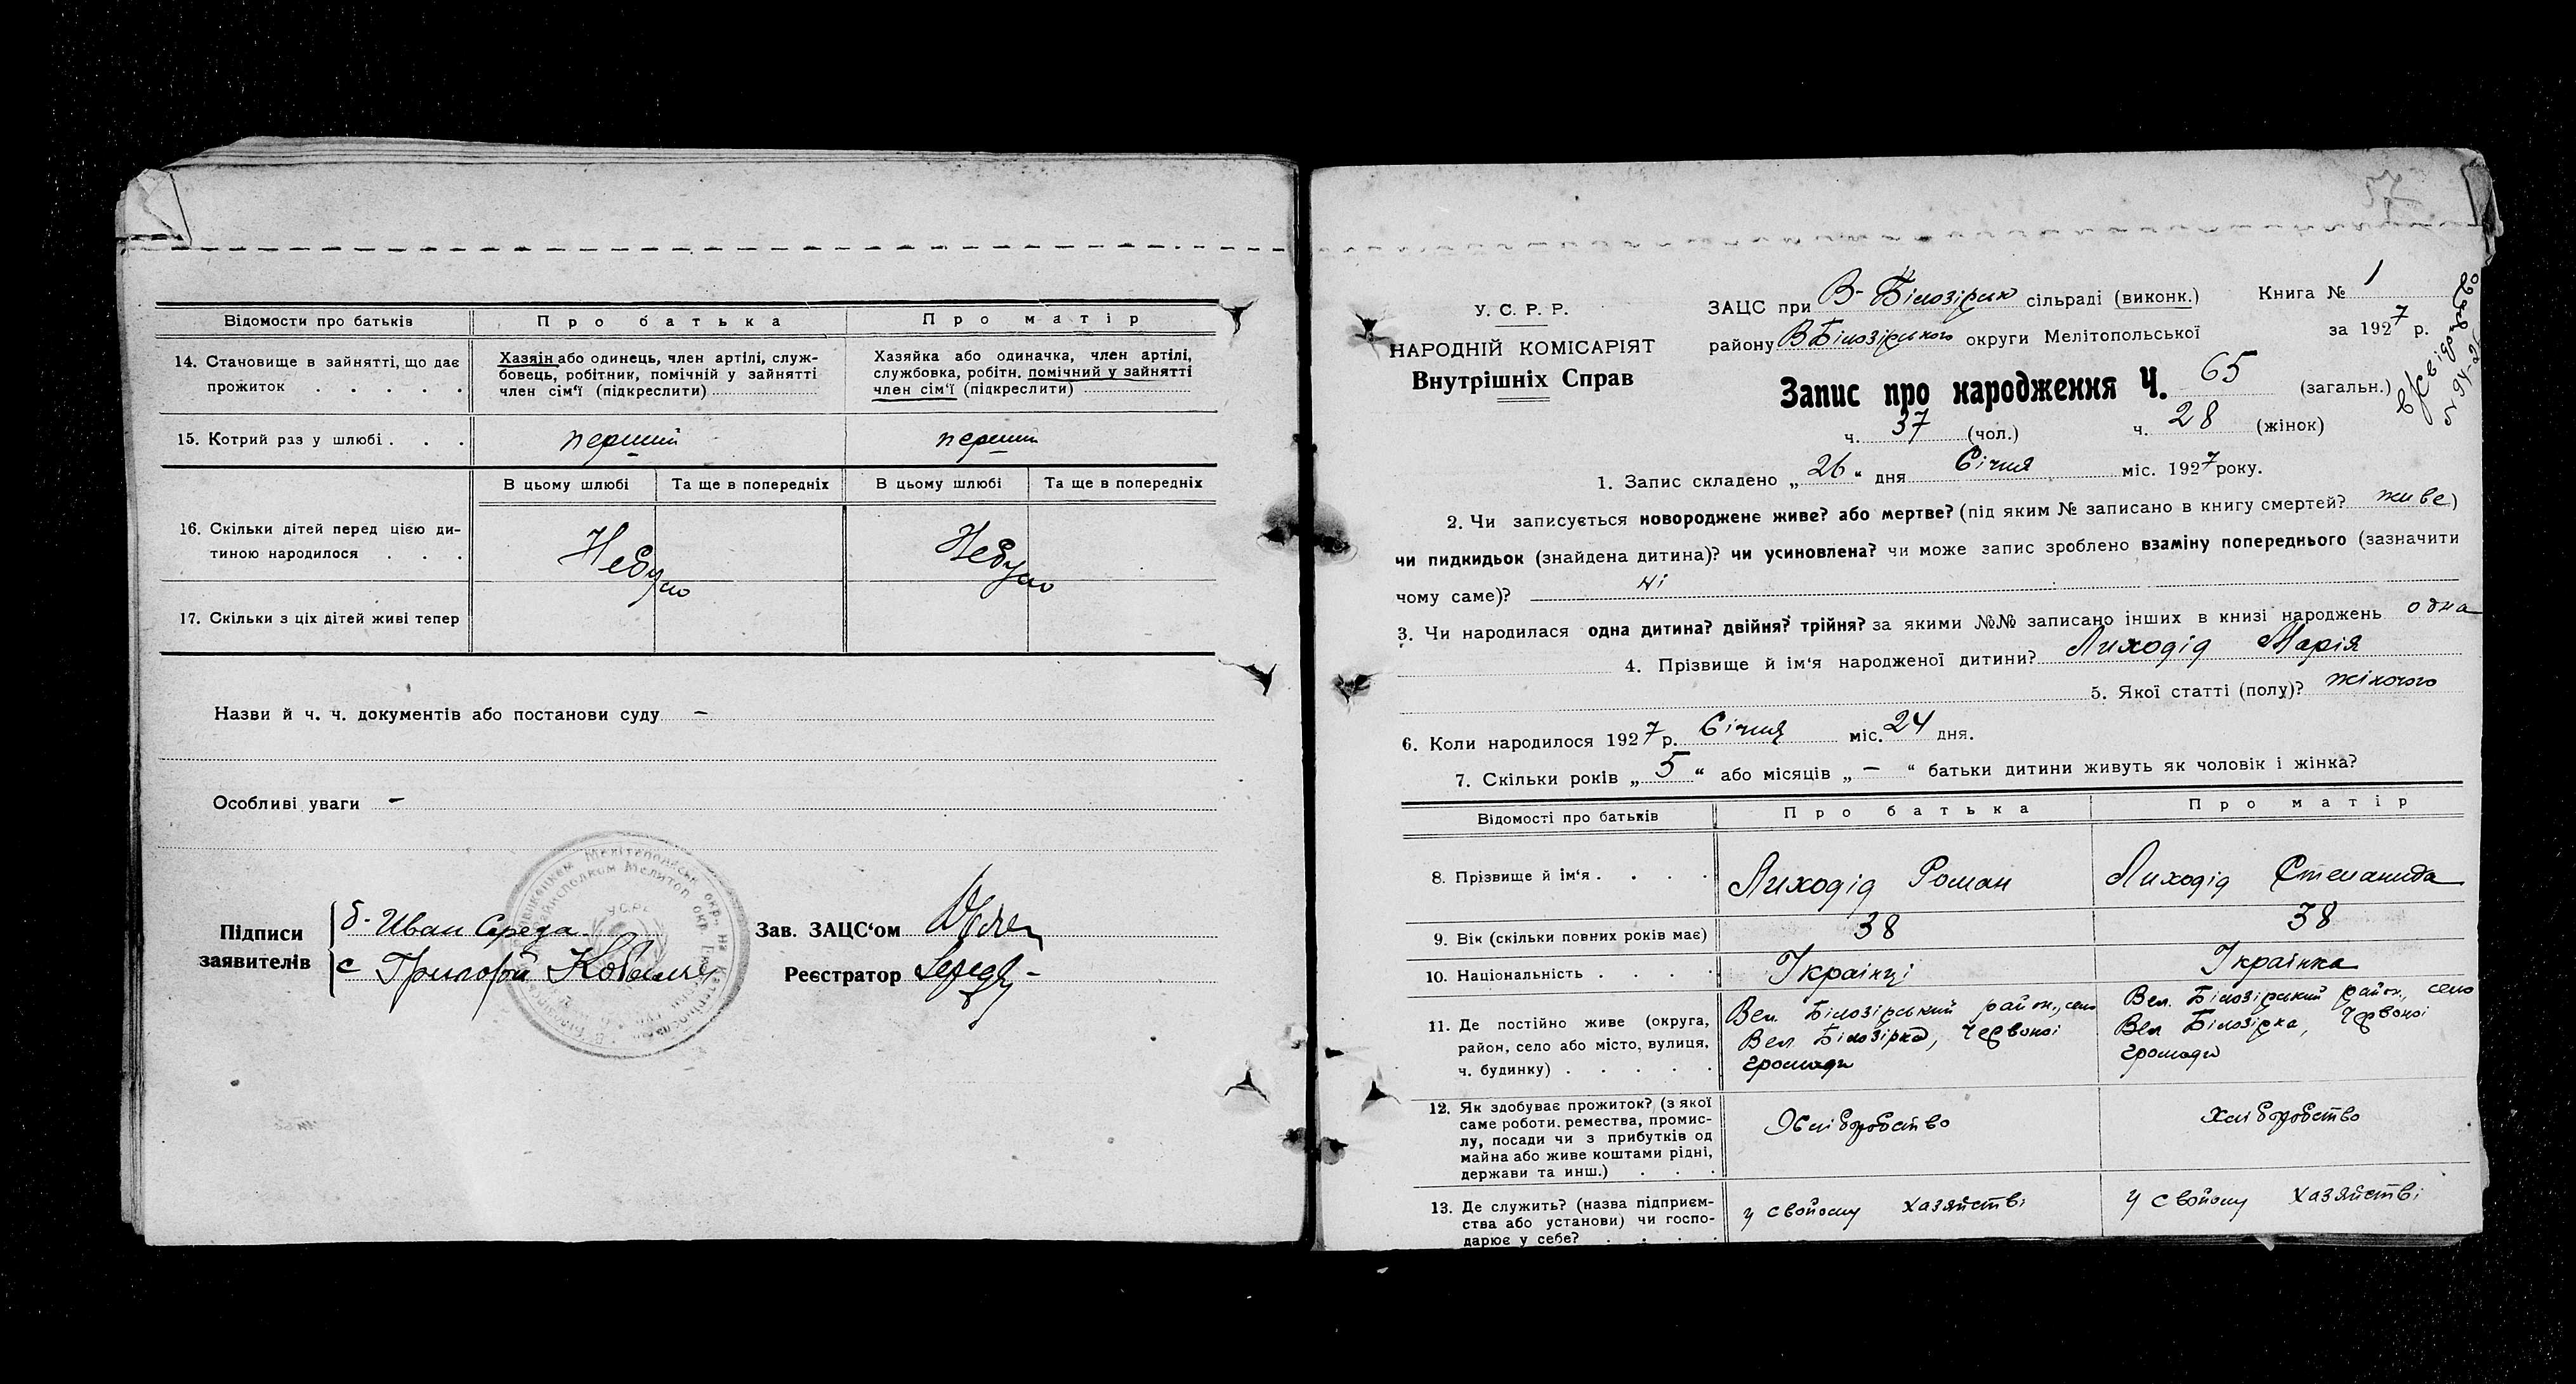 Відомости про батьків
Про батька
Про матір
14. Становище в зайнятті, що дає
прожиток . . . .
Хазяін або одинець, член артілі, служ-
бовець, робітник, помічній у зайнятті
член сім'ї (підкреслити)
Хазяйка або одиначка, член артілі,
службовка, робітн. помічний у зайнятті
член сім'ї (підкреслити)
15. Котрий раз у шлюбі . . .
перший
перший
В цьому шлюбі
Та ще в попередніх
В цьому шлюбі
Та ще в попередніх
16. Скільки дітей перед цією ди-
тиною народилося . . .
Небуло
Небуло
17. Скільки з ціх дітей живі тепер
Назви й ч. ч. документів або постанови суду —
Особливі уваги —
Підписи
заявителів
б. Иван Середа
с Григорій
Зав. ЗАЦС'ом
Реєстратор
У. С. Р. Р.
НАРОДНІЙ КОМІСАРІЯТ
Внутрішніх Справ
ЗАЦС при В-Білозірск сільраді (виконк.)
Книга № 1
району ВБілозірського округи Мелітопольської
за 1927 р.
Запис про народження Ч. 65 (загальн.)
ч. 37 (чол.)
ч. 28 (жінок)
1. Запис складено „26“ дня Січня міс. 1927 року.
2. Чи записується новороджене живе? або мертве? (під яким № записано в книгу смертей? живе)
чи пидкидьок (знайдена дитина)? чи усиновлена? чи може запис зроблено взаміну попереднього (зазначити
чому саме)? ні
3. Чи народилася одна дитина? двійня? трійня? за якими №№ записано інших в книзі народжень одна
4. Прізвище й ім'я народженої дитини? Лиходід Марія
5. Якої статті (полу)? жіночого
6. Коли народилося 1927 р. Січня міс. 24 дня.
7. Скільки років „5“ або місяців „—“ батьки дитини живуть як чоловік і жінка?
Відомості про батьків
Про батька
Про матір
8. Прізвище й ім'я . . . .
Лиходід Роман
Лиходід Степанида
9. Вік (скільки повних років має)
38
38
10. Національність . . . .
Українці
Українка
11. Де постійно живе (округа,
район, село або місто, вулиця,
ч. будинку) . . . . .
Вел. Білозірський район., село
Вел. Білозірка, Червоної
громади
Вел. Білозірський район., село
Вел Білозірка, Червоної
громади
12. Як здобуває прожиток? (з якої
саме роботи. ремества, промис-
лу, посади чи з прибутків од
майна або живе коштами рідні,
держави та инш.) . . .
Хліборобство
Хліборобство
13. Де служить? (назва підприєм-
ства або установи) чи госпо-
дарює у себе? . . . .
у свойому хазяйстві
у свойому хазяйстві